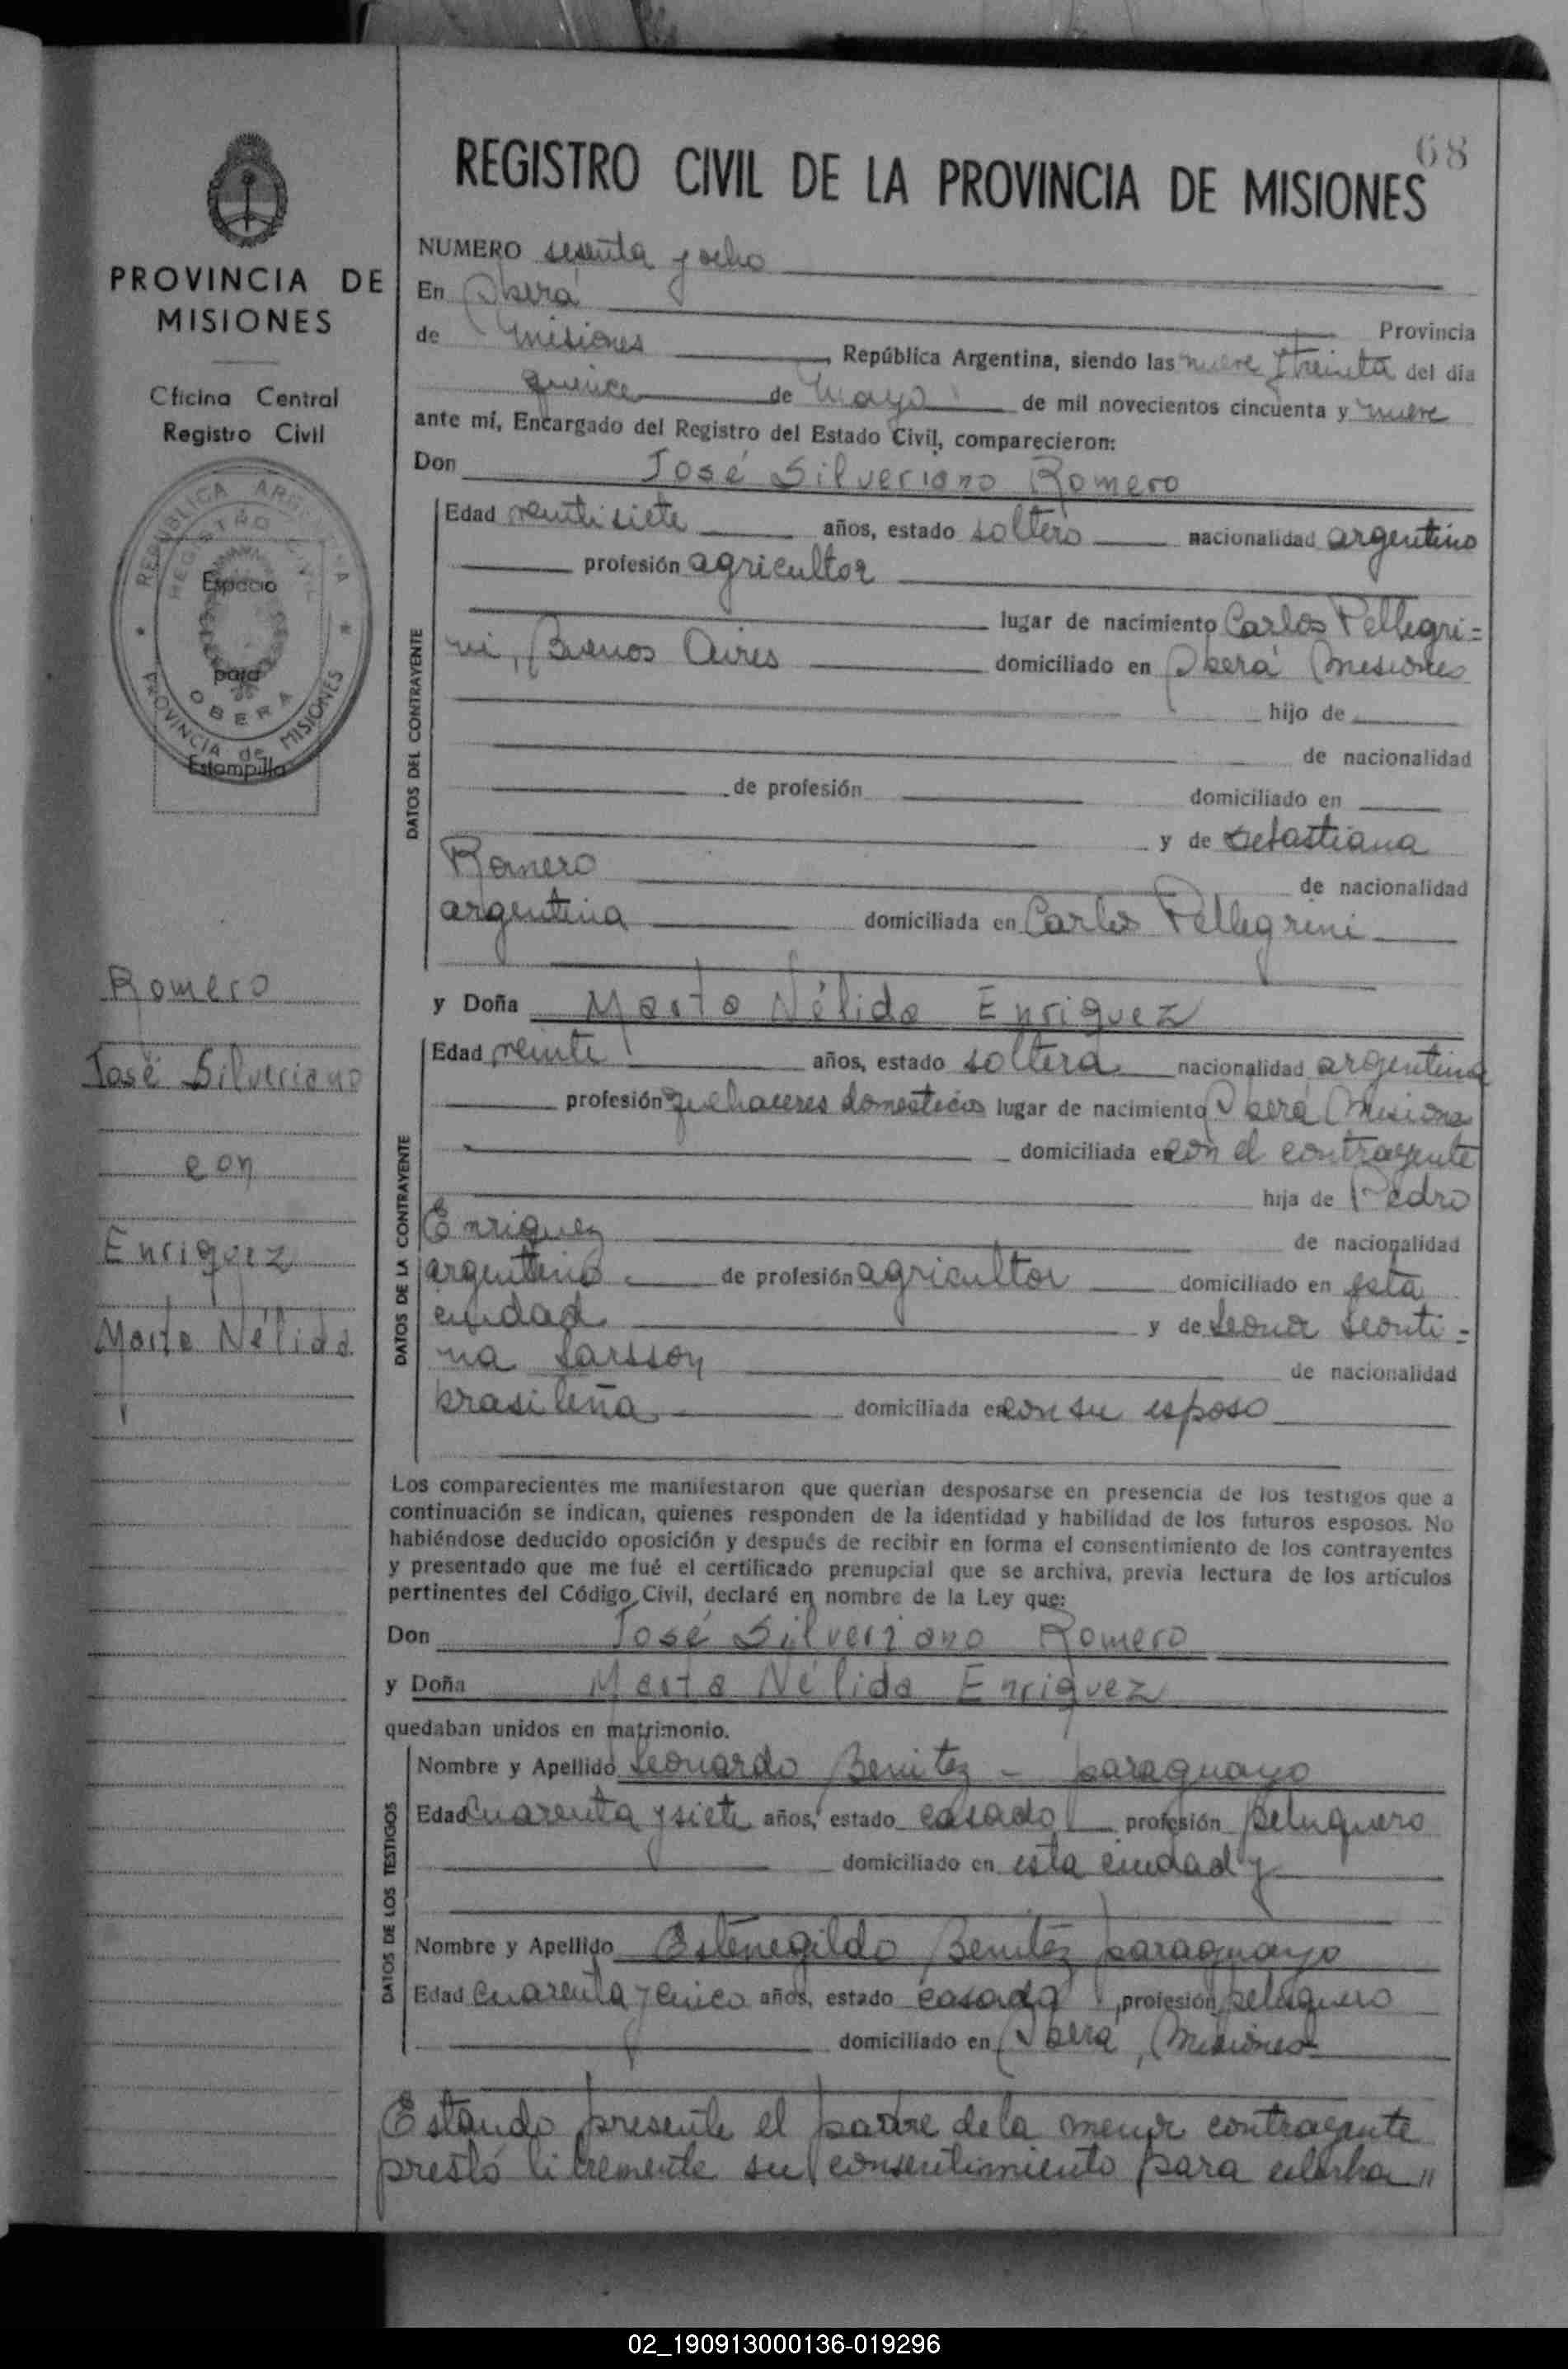 68
REGISTRO CIVIL DE LA PROVINCIA DE MISIONES
PROVINCIA DE
MISIONES
Oficina Central
Registro Civil
REPUBLICA ARGENTINA
REGISTRO CIVIL
OBERA
PROVINCIA de MISIONES
Espacio
para
Estampilla
Romero
José Silveriano
con
Enriquez
Marta Nélida
NUMERO sesenta y ocho
En Oberá Provincia
de Misiones, República Argentina, siendo las nueve y treinta del día
quince de Mayo de mil novecientos cincuenta y nueve
ante mí, Encargado del Registro del Estado Civil, comparecieron:
Don José Silveriano Romero
DATOS DEL CONTRAYENTE
Edad veintisiete años, estado soltero nacionalidad argentino
profesión agricultor
lugar de nacimiento Carlos Pellegri=
ni, Buenos Aires domiciliado en Oberá Misiones
hijo de
de nacionalidad
de profesión domiciliado en
y de Sebastiana
Romero de nacionalidad
argentina domiciliada en Carlos Pellegrini
y Doña Marta Nélida Enriquez
DATOS DE LA CONTRAYENTE
Edad veinte años, estado soltera nacionalidad argentina
profesión quehaceres domesticos lugar de nacimiento Oberá Misiones
domiciliada en con el contrayente
hija de Pedro
Enriquez de nacionalidad
argentino de profesión agricultor domiciliado en esta
ciudad y de Leonor Leonti=
na Larsson de nacionalidad
brasileña domiciliada en con su esposo
Los comparecientes me manifestaron que querían desposarse en presencia de los testigos que a
continuación se indican, quienes responden de la identidad y habilidad de los futuros esposos. No
habiéndose deducido oposición y después de recibir en forma el consentimiento de los contrayentes
y presentado que me fué el certificado prenupcial que se archiva, previa lectura de los artículos
pertinentes del Código Civil, declaré en nombre de la Ley que:
Don José Silveriano Romero
y Doña Marta Nélida Enriquez
quedaban unidos en matrimonio.
DATOS DE LOS TESTIGOS
Nombre y Apellido Leonardo Benitez - paraguayo
Edad cuarenta y siete años, estado casado profesión peluquero
domiciliado en esta ciudad y
Nombre y Apellido Estenegildo Benitez paraguayo
Edad cuarenta y cinco años, estado casado, profesión peluquero
domiciliado en Oberá, Misiones
Estando presente el padre de la menor contrayente
prestó libremente su consentimiento para esta
02_190913000136-019296